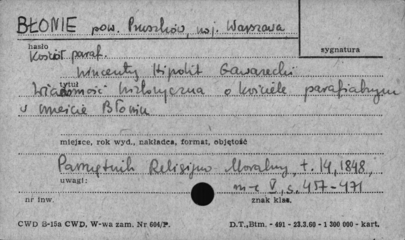 BŁONIE pow. Pruszków, woj. Warszawa
hasło
sygnatura
Kośćół paraf.
Wincenty Hipolit Gawarecki
tytuł
Wiadomość historyczna o kościele parafialnym
w mieście Błoniu
miejsce, rok wyd., nakładca, format, objętość
Pamiętnik Religijno Moralny, t. 14, 1848,
uwagi:
s. 457-471
nr inw.
znak klas.
CWD B-15a CWD, W-wa zam. Nr 604/P.
D.T., Btm. - 491 - 23.3.60 - 1 300 000 - kart.